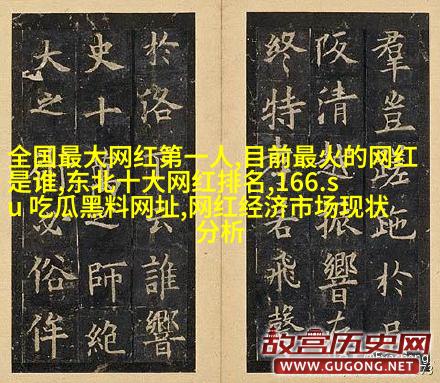 羣豈蹉跎於
阪清振響
終特飛
於洛誰響
史十師絶
大之俗侔
全国最大网红第一人,目前最火的网红
是谁,东北十大网红排名,166.s
u 吃瓜黑料网址,网红经济市场现状
分析
故宫历史网
WWW.GUGONG.NET